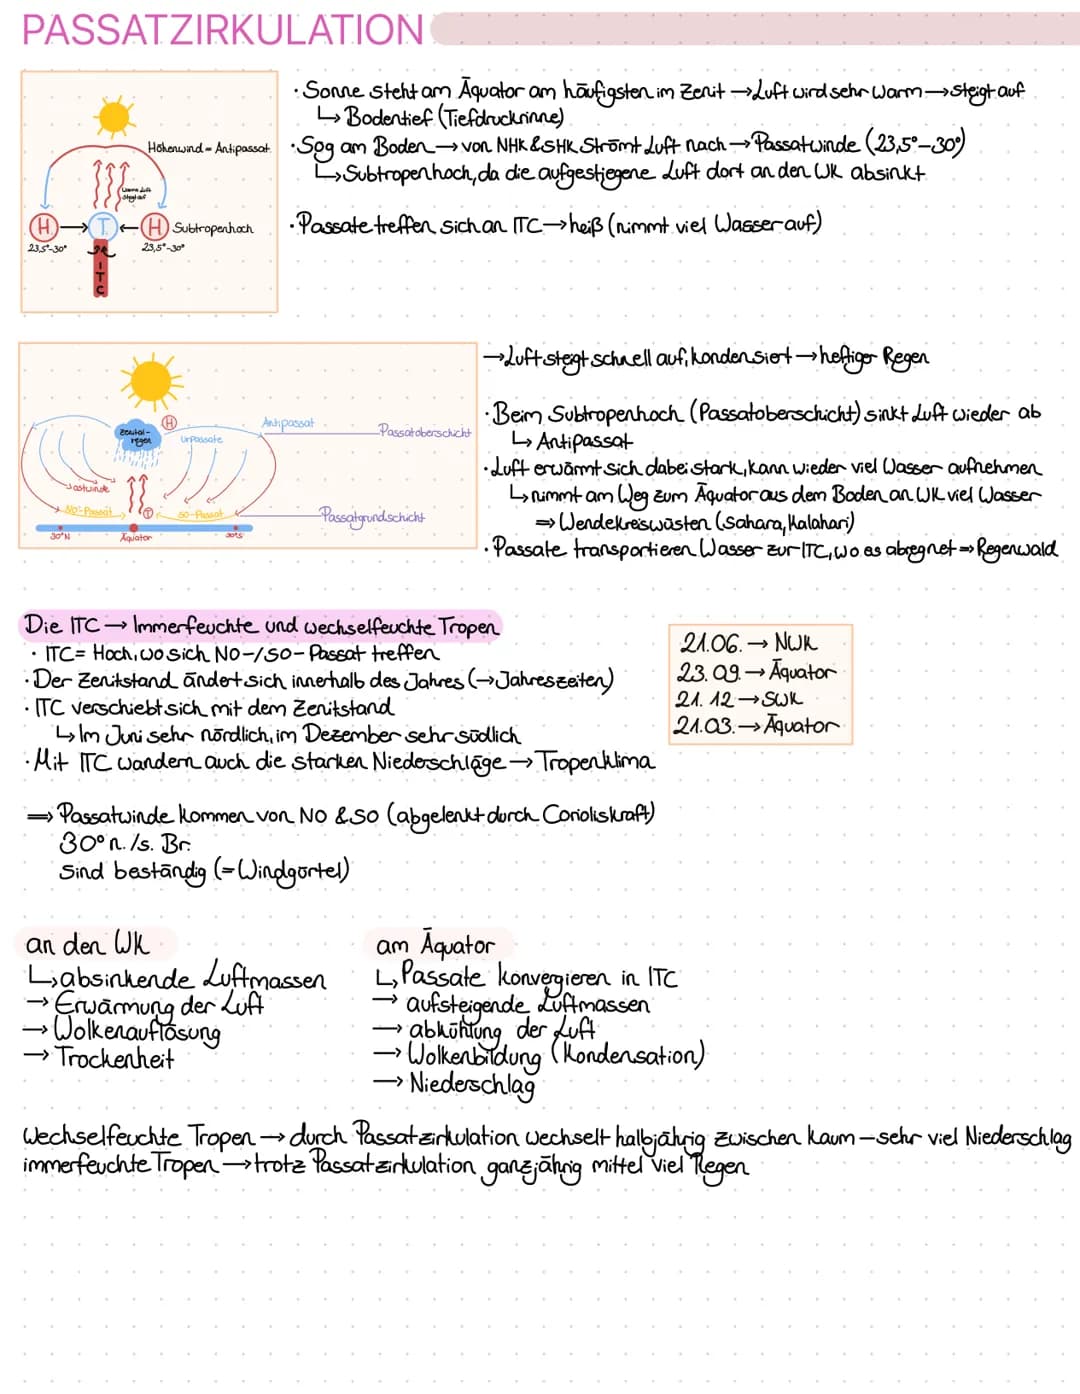 PASSATZIRKULATION
Höhenwind = Antipassat
warme Luft
steigt auf
H → T ← H Subtropenhoch
23,5°-30° 23,5°-30°
ITC
· Sonne steht am Äquator am häufigsten im Zenit → Luft wird sehr warm → steigt auf
↳ Bodentief (Tiefdruckrinne)
· Sog am Boden → von NHK & SHK strömt Luft nach → Passatwinde (23,5°-30°)
↳ Subtropenhoch, da die aufgestiegene Luft dort an den WK absinkt
· Passate treffen sich an ITC → heiß (nimmt viel Wasser auf)
Zenital-
regen
H
Urpassate
Antipassat
Passatoberschicht
Ostwinde
NO-Passat
T
SO-Passat
Passatgrundschicht
30°N
Äquator
30°S
→ Luft steigt schnell auf, kondensiert → heftiger Regen
· Beim Subtropenhoch (Passatoberschicht) sinkt Luft wieder ab
↳ Antipassat
· Luft erwärmt sich dabei stark, kann wieder viel Wasser aufnehmen
↳ nimmt am Weg zum Äquator aus dem Boden an WK viel Wasser
⇒ Wendekreiswüsten (Sahara, Kalahari)
· Passate transportieren Wasser zur ITC, wo es abregnet ⇒ Regenwald
Die ITC → Immerfeuchte und wechselfeuchte Tropen
· ITC = Hoch, wo sich NO-/SO-Passat treffen
· Der Zenitstand ändert sich innerhalb des Jahres (→ Jahreszeiten)
· ITC verschiebt sich mit dem Zenitstand
↳ Im Juni sehr nördlich, im Dezember sehr südlich
· Mit ITC wandern auch die starken Niederschläge → Tropenklima
21.06. → NWK
23.09. → Äquator
21.12 → SWK
21.03. → Äquator
⇒ Passatwinde kommen von NO & SO (abgelenkt durch Corioliskraft)
30° n./s. Br.
sind beständig (= Windgürtel)
an den WK
↳ absinkende Luftmassen
→ Erwärmung der Luft
→ Wolkenauflösung
→ Trockenheit
am Äquator
↳ Passate konvergieren in ITC
→ aufsteigende Luftmassen
→ abkühlung der Luft
→ Wolkenbildung (Kondensation)
→ Niederschlag
Wechselfeuchte Tropen → durch Passatzirkulation wechselt halbjährig zwischen kaum - sehr viel Niederschlag
immerfeuchte Tropen → trotz Passatzirkulation ganzjährig mittel viel Regen